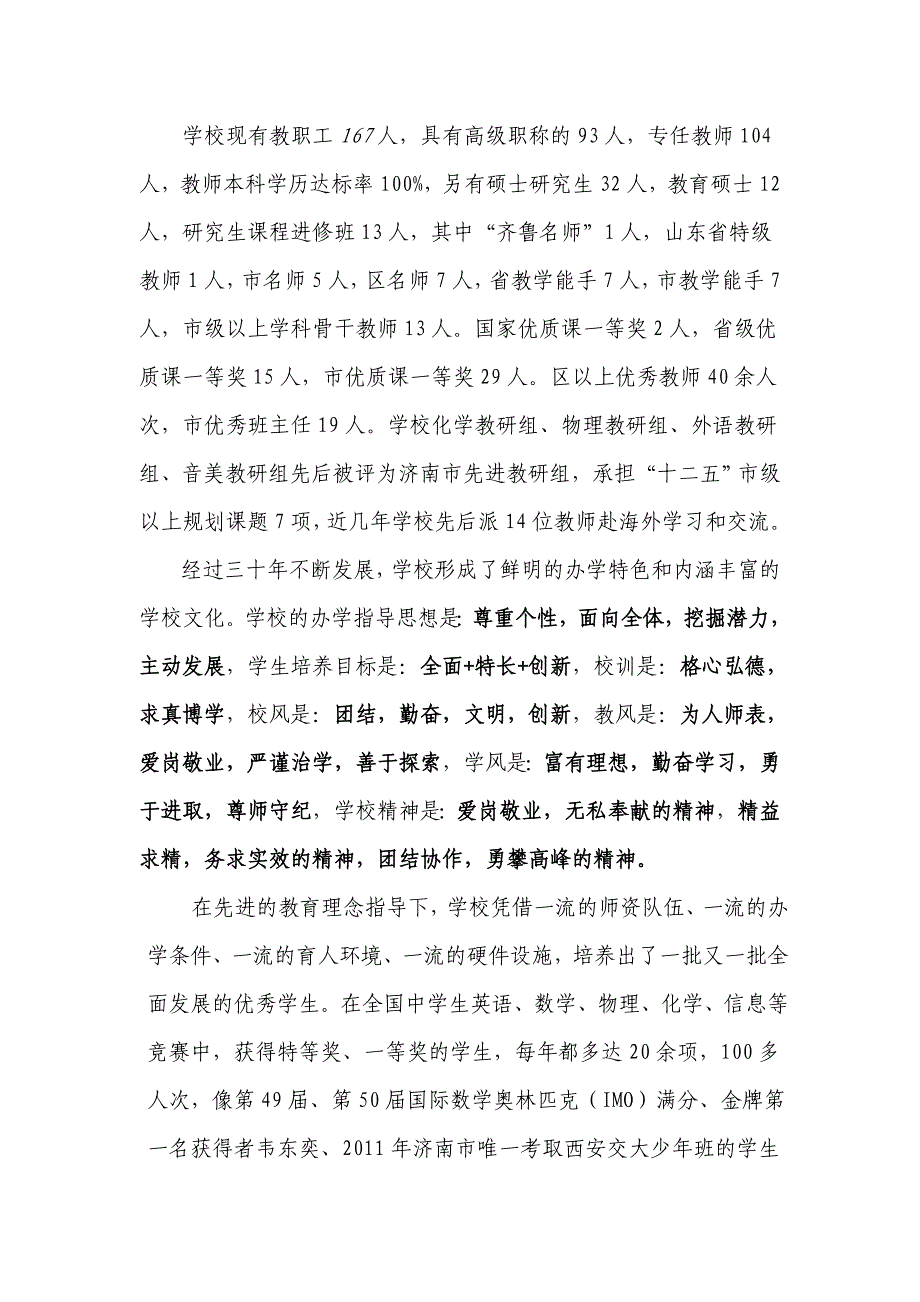 学校现有教职工 167 人，具有高级职称的 93 人，专任教师 104
人，教师本科学历达标率 100%，另有硕士研究生 32 人，教育硕士 12
人，研究生课程进修班 13 人，其中“齐鲁名师”1 人，山东省特级
教师 1 人，市名师 5 人，区名师 7 人，省教学能手 7 人，市教学能手 7
人，市级以上学科骨干教师 13 人。国家优质课一等奖 2 人，省级优
质课一等奖 15 人，市优质课一等奖 29 人。区以上优秀教师 40 余人
次，市优秀班主任 19 人。学校化学教研组、物理教研组、外语教研
组、音美教研组先后被评为济南市先进教研组，承担“十二五”市级
以上规划课题 7 项，近几年学校先后派 14 位教师赴海外学习和交流。
经过三十年不断发展，学校形成了鲜明的办学特色和内涵丰富的
学校文化。学校的办学指导思想是：尊重个性，面向全体，挖掘潜力，
主动发展，学生培养目标是：全面+特长+创新，校训是：格心弘德，
求真博学，校风是：团结，勤奋，文明，创新，教风是：为人师表，
爱岗敬业，严谨治学，善于探索，学风是：富有理想，勤奋学习，勇
于进取，尊师守纪，学校精神是：爱岗敬业，无私奉献的精神，精益
求精，务求实效的精神，团结协作，勇攀高峰的精神。
在先进的教育理念指导下，学校凭借一流的师资队伍、一流的办
学条件、一流的育人环境、一流的硬件设施，培养出了一批又一批全
面发展的优秀学生。在全国中学生英语、数学、物理、化学、信息等
竞赛中，获得特等奖、一等奖的学生，每年都多达 20 余项，100 多
人次，像第 49 届、第 50 届国际数学奥林匹克（IMO）满分、金牌第
一名获得者韦东奕、2011 年济南市唯一考取西安交大少年班的学生